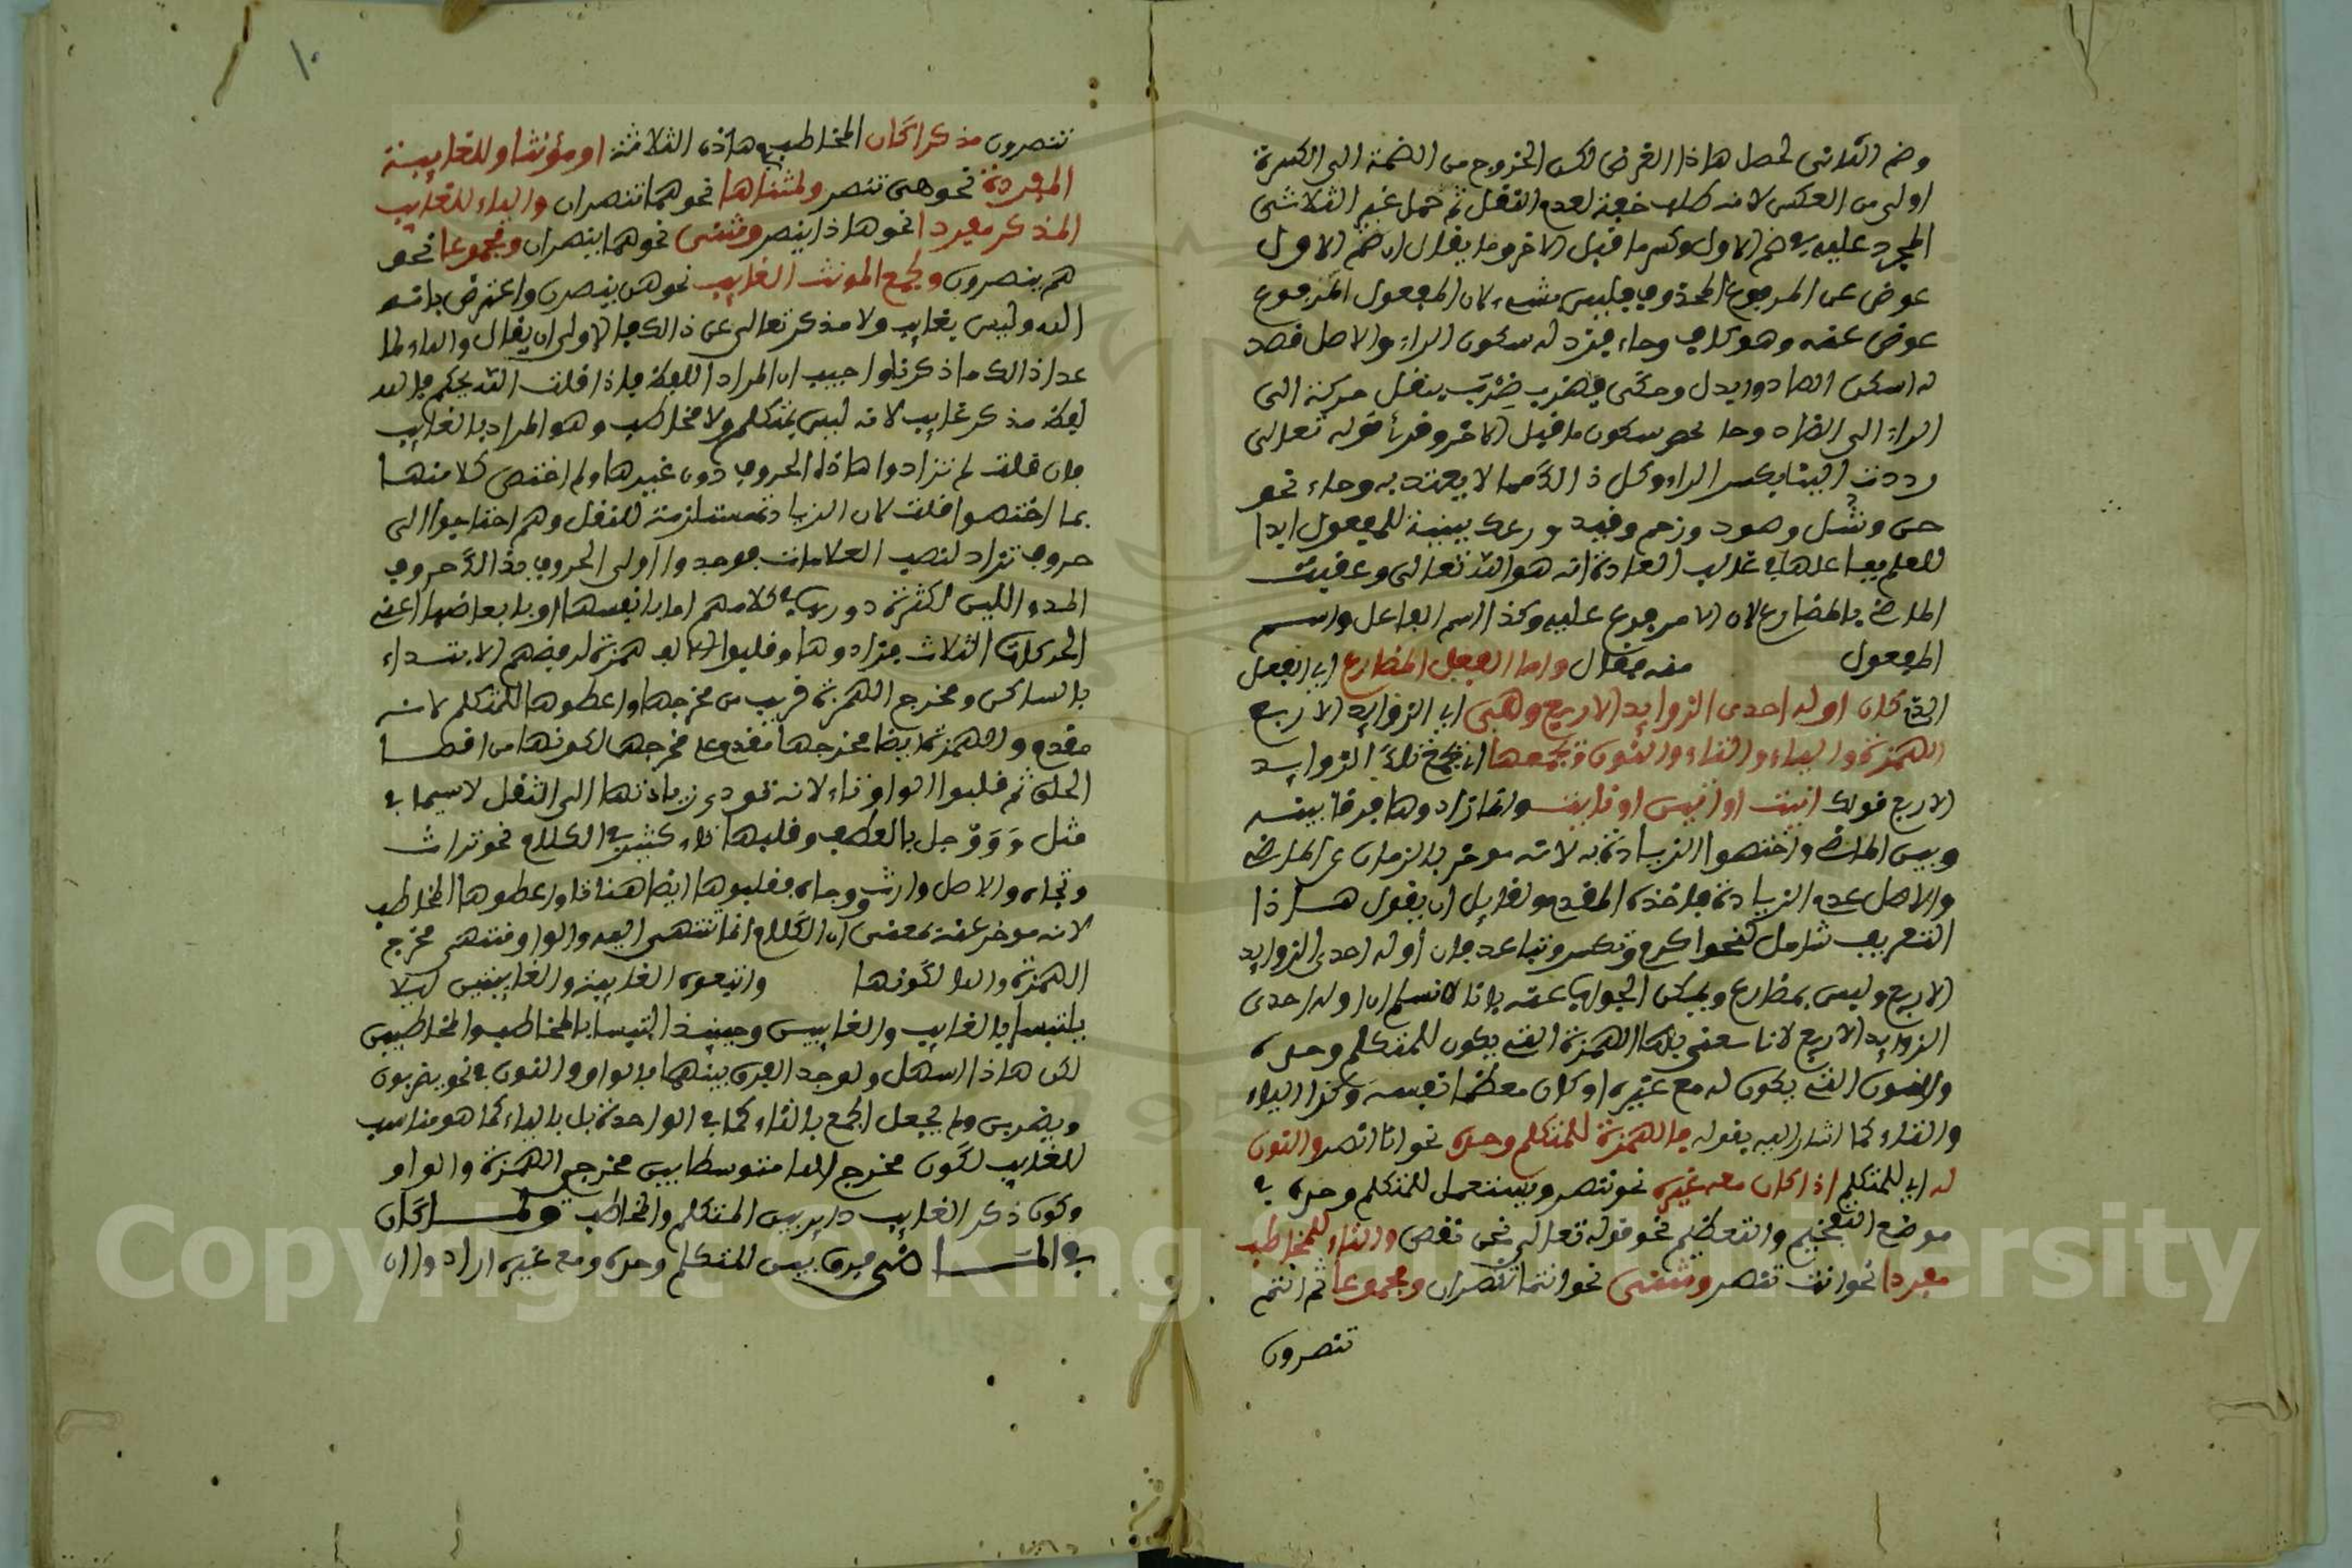 وضم الثاني لحصل هاذا الغرض لكن الخروج من الضمة الى الكسرة
اولى من العكس لانه طلب خفة لعدم الثقل ثم حمل غير الثلاثي
المجرد عليه في ضم الاول وكسر ما قبل الاخر وما يقال ان ضم الاول
عوض عن المرفوع المحذوف فليس بشيء لان المفعول المرفوع
عوض عنه وهو كاف وجاء فزد له سكون الزاء والاصل قصد
له اسكن الصاد وابدل وحكى في ضرب ضرب بنقل حركة الى
الراء الى الضاد وجاء عصر سكون ما قبل الاخر وقرئ قوله تعالى
ردت الينا بكسر الراء وكل ذالك مما لا يعتد به وجاء نحو
جن وسل وزحم وفيد ووعك مبنية للمفعول ابدا
للعلم بفاعلها في غالب العادة انه هو الله تعالى وعقيب
الماضي بالمضارع لان الامر فرع عليه وكذا اسم الفاعل واسم
المفعول منه فقال واما الفعل المضارع اي الفعل
الذي كان اوله احدى الزوايد الاربع وهي اي الزوايد الاربع
الهمزة والياء والتاء والنون تجمعها اي تجمع تلك الزوايد
الاربع قولك انيت او اتين او ناتي وانما زادوها فرقا بينه
وبين الماضي واختصوا الزيادة به لانه موخر بالزمان عن الماضي
والاصل عدم الزيادة فاخذه المقدم ولقايل ان يقول هاذا
التعريف شامل لنحو اكرم وتكسر وتباعد فان اوله احدى الزوايد
الاربع وليس بمضارع ويمكن الجواب عنه بانا لا نسلم ان اوله احدى
الزوايد الاربع لانا نعني بها الهمزة التي يكون للمتكلم وحده
والنون التي يكون له مع غيره او كان معظما نفسه وكذا الياء
والتاء كما اشار اليه بقوله فالهمزة للمتكلم وحده نحو انا انصر والنون
له اي للمتكلم اذا كان معه غيره نحو ننصر ويستعمل للمتكلم وحده في
موضع التفخيم والتعظيم نحو قوله تعالى نحن نقص والتاء للمخاطب
مفردا نحو انت تنصر ومثنى نحو انتما تنصران ومجموعا نحو انتم
تنصرون
١٠
تنصرون مذكرا كان المخاطب في هاذه الثلاثة او مؤنثا وللغايبة
المفردة نحو هي تنصر ولمثناها نحو هما تنصران والياء للغايب
المذكر مفردا نحو هاذا ينصر ومثنى نحو هما ينصران ومجموعا نحو
هم ينصرون ولجمع المونث الغايب نحو هن ينصرن واعترض بانه
الله وليس بغايب ولا مذكر تعالى عن ذالك فالاولى ان يقال والياء لما
عدا ذالك ما ذكرنا واجيب ان المراد اللفظ فاذا قلت الله يحكم فالله
لفظ مذكر غايب لانه ليس بمتكلم ولا مخاطب وهو المراد بالغايب
فان قلت لم زادوا هاذه الحروف دون غيرها ولم اختص كلا منها
بما اختصوا قلت لان الزيادة مستلزمة للثقل وهم احتاجوا الى
حروف تزاد لنصب العلامات فوجدوا اولى الحروف بذالك حروف
المد واللين لكثرة دورها في كلامهم اما بانفسها او بابعاضها اعني
الحركات الثلاث فزادوها وقلبوا الالف همزة لرفضهم الابتداء
بالساكن ومخرج الهمزة قريب من مخرجها واعطوها للمتكلم لانه
مقدم والهمزة ايضا مخرجها مقدم على مخرجها لكونها من اقصا
الحلق ثم قلبوا الواو تاء لانه تودى زيادتها الى الثقل لاسيما في
مثل ووجل بالعطف وقلبها تاء كثير في الكلام نحو تراث
وتجاه والاصل وارث ووجاه فقلبوها ايضا هنا تاء واعطوها المخاطب
لانه موخر عنه بمعنى ان الكلام انما تنتهي اليه والواو منتهى مخرج
الهمزة والها لكونها واتبعوه الغايبة والغايبتين ليلا
يلتبسا بالغايب والغايبين وحينئذ التبسا بالمخاطب والمخاطبين
لكن هاذا اسهل ولوجد الفرق بينهما بالواو والنون في نحو يضربون
ويضربن ولم يجعل الجمع بالتاء كما في الواحدة بل بالياء كما هو مناسب
للغايب لكون مخرج الياء متوسطا بين مخرج الهمزة والواو
وكون ذكر الغايب داير بين المتكلم والمخاطب ولما كان
في الماضي فرق بين المتكلم وحده ومع غيره ارادوا ان
Copyright © King Saud University